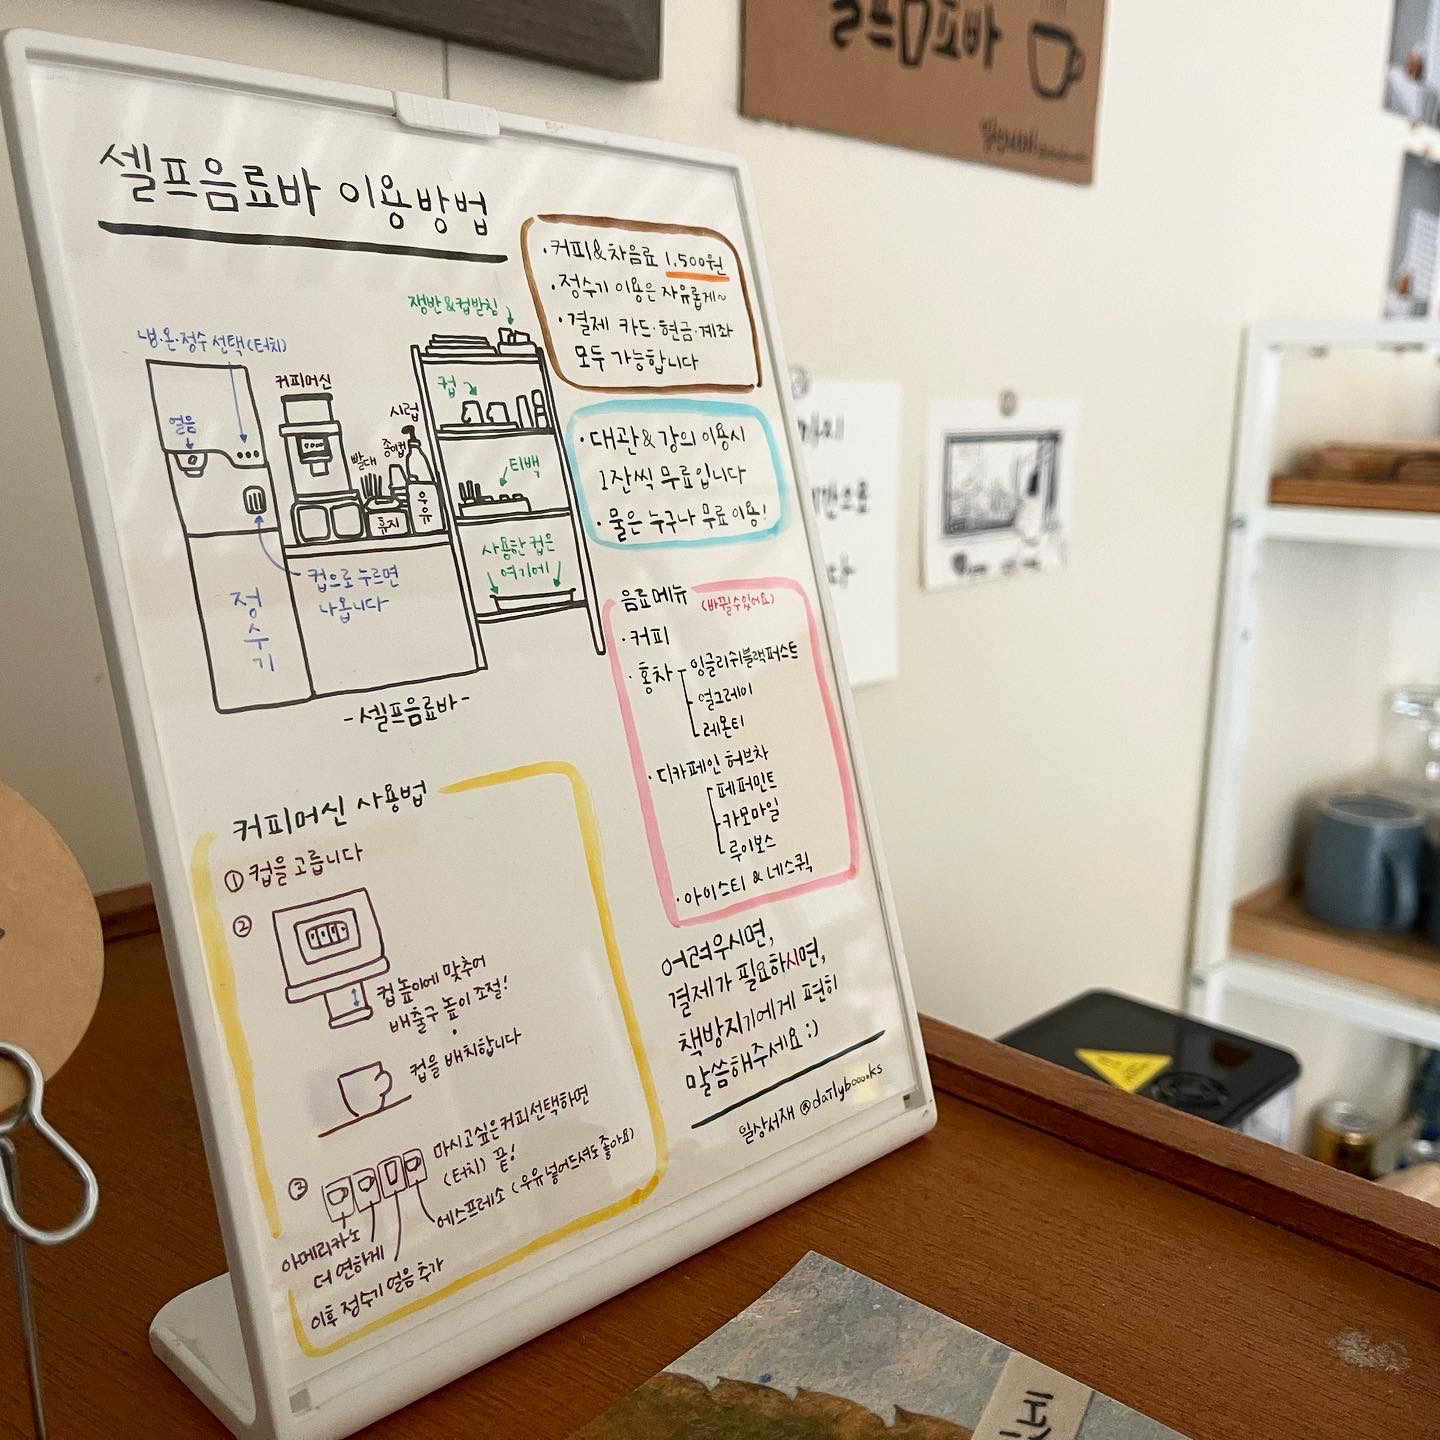 셀프음료바
일상서재
셀프음료바 이용방법
·커피&차음료 1,500원
·정수기 이용은 자유롭게~
·결제 카드·현금·계좌
모두 가능합니다
·대관&강의 이용시
1잔씩 무료입니다
·물은 누구나 무료 이용!
쟁반&컵받침
냉·온·정수 선택(터치)
커피머신
컵
얼음
시럽
빨대
종이컵
티백
우유
휴지
사용한 컵은
여기에
컵으로 누르면
나옵니다
정수기
-셀프음료바-
음료메뉴 (바뀔수있어요)
·커피
·홍차 잉글리쉬블랙퍼스트
얼그레이
레몬티
·디카페인 허브차
페퍼민트
카모마일
루이보스
·아이스티 & 네스퀵
커피머신 사용법
① 컵을 고릅니다
②
컵 높이에 맞추어
배출구 높이 조절!
컵을 배치합니다
③
마시고싶은커피선택하면
(터치) 끝!
에스프레소 (우유 넣어드셔도 좋아요)
아메리카노
더 연하게
이후 정수기 얼음 추가
어려우시면,
결제가 필요하시면,
책방지기에게 편히
말씀해주세요 :)
일상서재 @dailyboooks